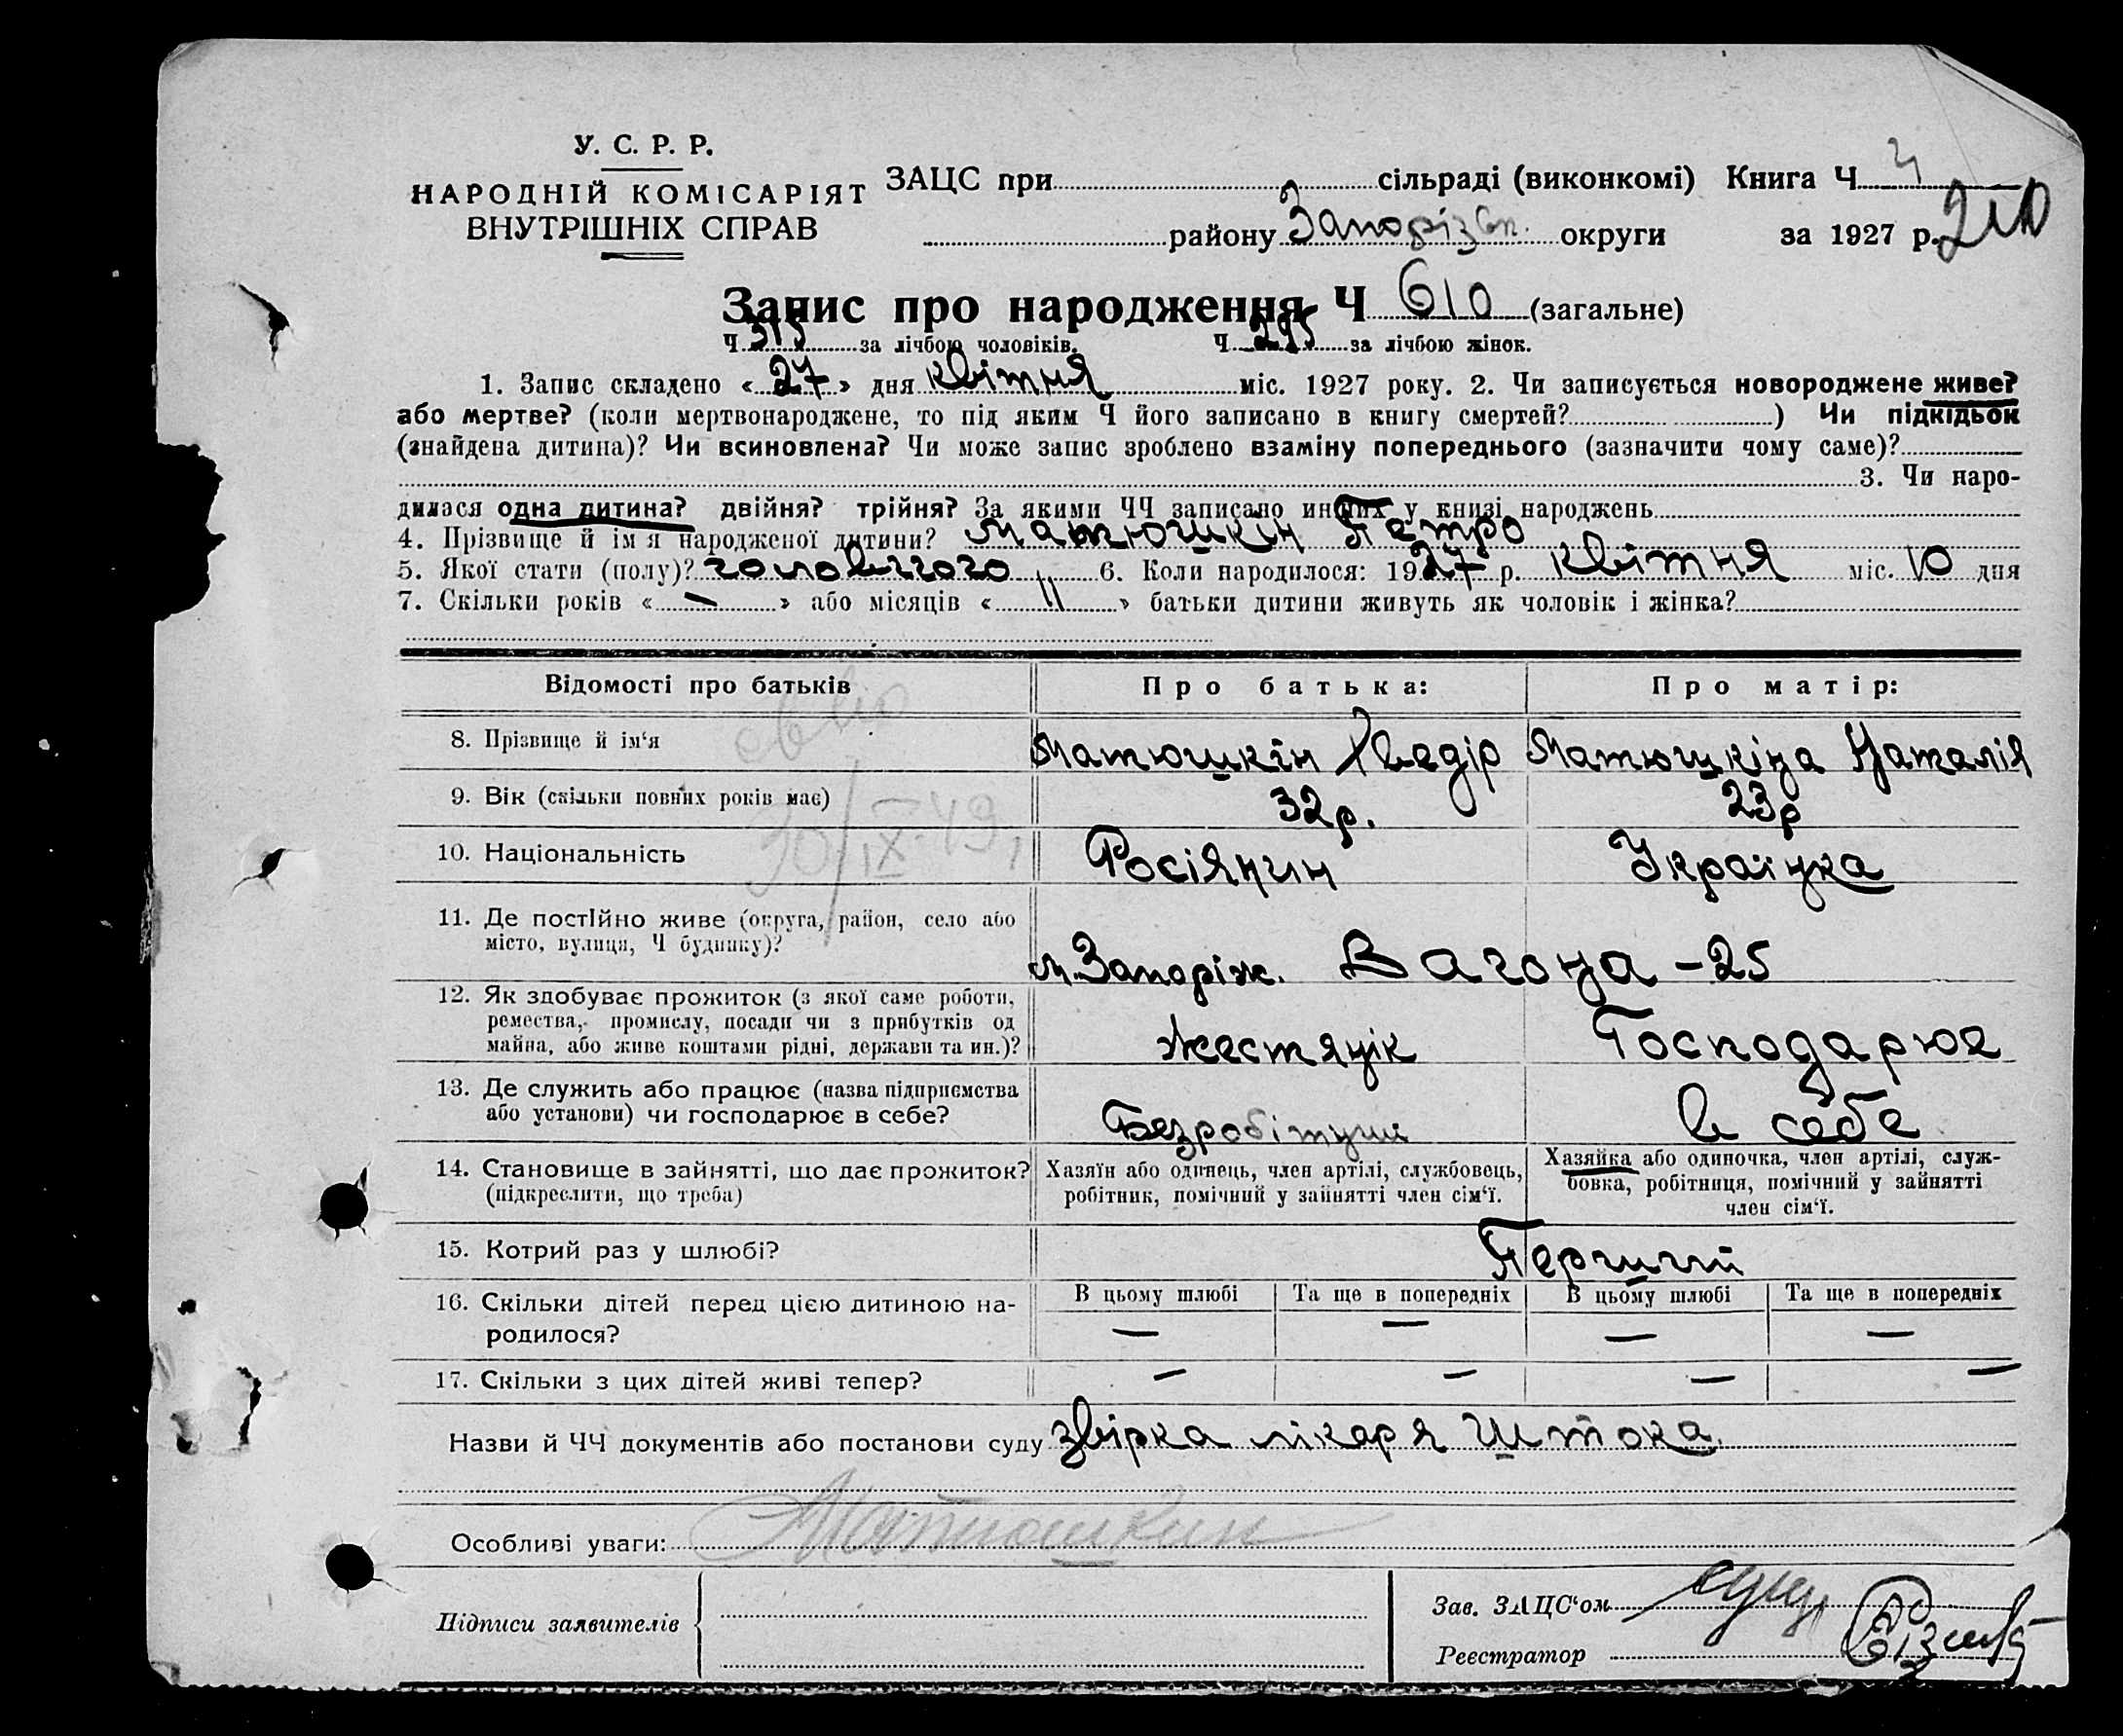 У. С. Р. Р.
НАРОДНІЙ КОМІСАРІЯТ
ВНУТРІШНІХ СПРАВ
ЗАЦС при сільраді (виконкомі) Книга Ч
району Запорізьк. округи за 1927 р. 210
Запис про народження Ч 610 (загальне)
Ч 315 за лічбою чоловіків. Ч 295 за лічбою жінок.
1. Запис складено « 27 » дня квітня міс. 1927 року. 2. Чи записується новороджене живе?
або мертве? (коли мертвонароджене, то під яким Ч його записано в книгу смертей? ) Чи підкідьок
(знайдена дитина)? Чи всиновлена? Чи може запис зроблено взаміну попереднього (зазначити чому саме)?
3. Чи наро-
дилася одна дитина? двійня? трійня? За якими ЧЧ записано инших у книзі народжень
4. Прізвище й ім я народженої дитини? Матюшкін Петро
5. Якої стати (полу)? чоловічого 6. Коли народилося: 1927 р. квітня міс. 10 дня
7. Скільки років « — » або місяців « 11 » батьки дитини живуть як чоловік і жінка?
Відомості про батьків Про батька: Про матір:
8. Прізвище й ім'я Матюшкін Хведір Матюшкіна Наталія
9. Вік (скільки повних років має) 32 р. 23 р
30/IX-49
10. Національність Росіянин Українка
11. Де постійно живе (округа, район, село або
місто, вулиця, Ч будинку)? м. Запоріж. Вагона - 25
12. Як здобуває прожиток (з якої саме роботи,
ремества, промислу, посади чи з прибутків од
майна, або живе коштами рідні, держави та ин.)? жестянік Господарює
13. Де служить або працює (назва підприємства
або установи) чи господарює в себе? Безробітний в себе
14. Становище в зайнятті, що дає прожиток?
(підкреслити, що треба)
Хазяїн або одинець, член артілі, службовець,
робітник, помічний у зайнятті член сім'ї.
Хазяйка або одиночка, член артілі, служ-
бовка, робітниця, помічний у зайнятті
член сім'ї.
15. Котрий раз у шлюбі? Перший
16. Скільки дітей перед цією дитиною на-
родилося?
В цьому шлюбі Та ще в попередніх В цьому шлюбі Та ще в попередніх
— — — —
17. Скільки з цих дітей живі тепер? — — — —
Назви й ЧЧ документів або постанови суду звірка лікаря Штока.
Особливі уваги: Матюшкин
Підписи заявителів
Зав. ЗАЦС'ом
Реєстратор